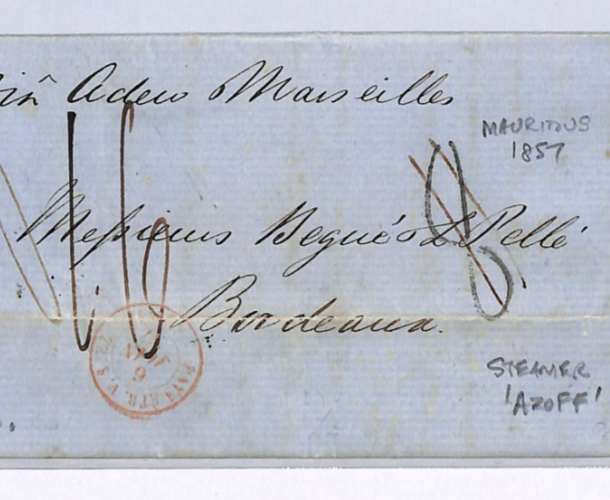 Aden Marseilles
MAURITIUS
1857
16
8
Messieurs Begué & Pellé
Bordeaux.
6
STEAMER
'AZOFF'